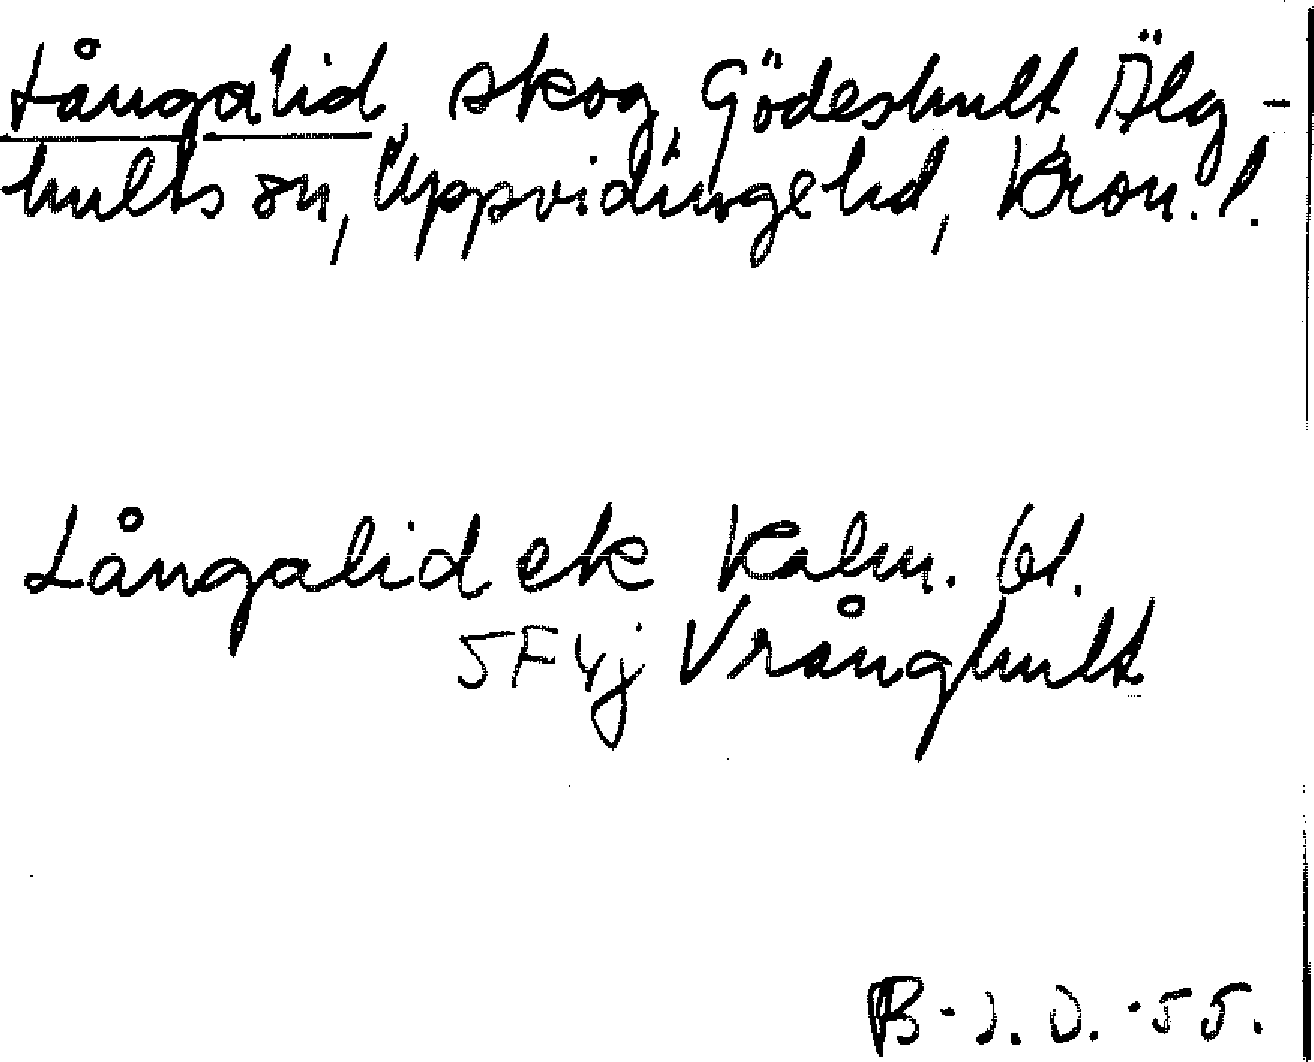 Långalid, skog, Gödeshult Älg-
hults sn, Uppvidinge hd, Kron. l.
Långalid ek Kalm. bl.
5F4j Vrånghult
B-J.O.-55.